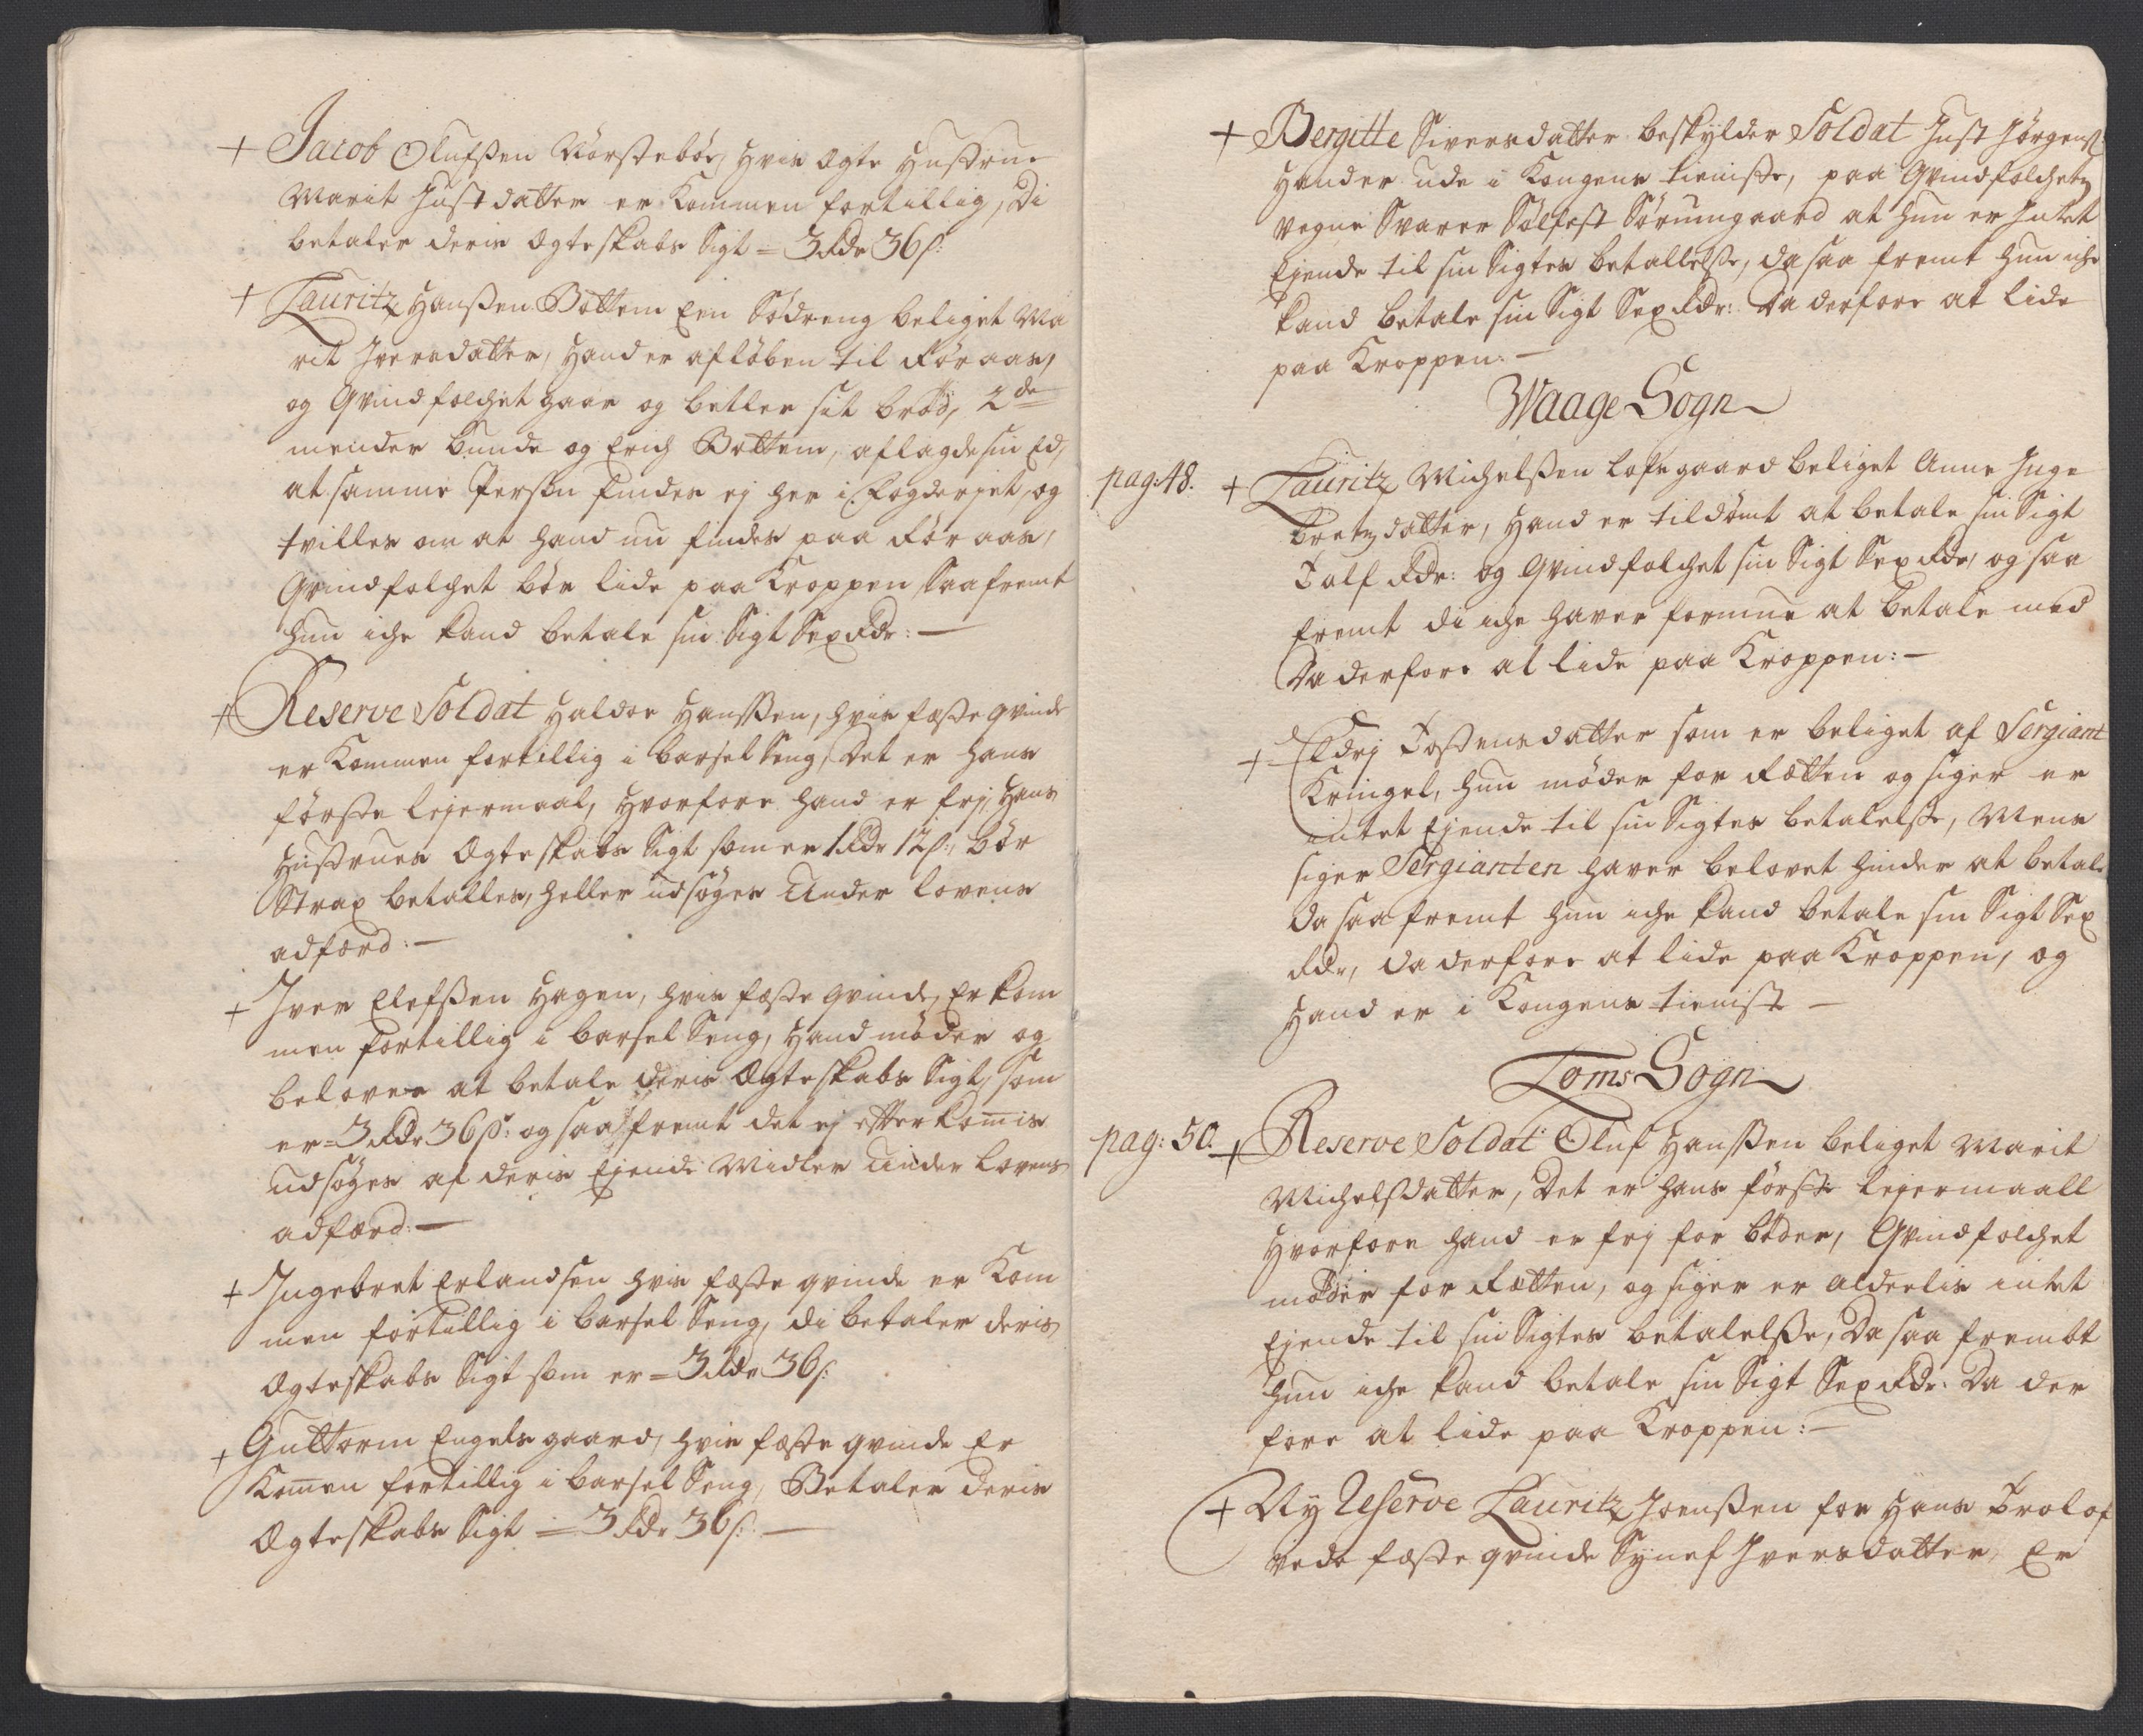 + Jacob Olufßen Nörsteböe, hvis Ægte Hustrue
Marit Just datter er Kommen fortillig, di
betaler deris Ægteskabs Sigt = 3 Rdr 36 s:
+ Lauritz Hanßen Bottem Een Födreng beliget Ma
rit Iversdatter, Hand er afløben til Röraas,
og Qvindfolchet gaar og betler sit bröd, 2de
mender Bunde og Erich Bottem, aflagde sin Ed,
at samme Persön findes ej her i Fogderjet, og
tvilles om at hand nu findes paa Röraas,
Qvindfolchet bör lide paa Kroppen saafremt
hun iche kand betale sin Sigt Sex Rdr: —
+ Reserve Soldat Haldor Hanßen, hvis fæste qvinde
er Kommen fortillig i barsel Seng, Det er hans
förste lejermaal, hvorfore hand er frj, Hans
Hustrues Ægteskabs Sigt som er 1 Rdr 12 s:, bör
Strax betalles, heller udsöges Under lovens
adfærd: —
+ Iver Elefßen Hagen, hvis fæste qvinde, Er kom
men fortillig i barsel Seng, Hand möder og
belover at betale deris Ægteskabs Sigt, som
er = 3 Rdr 36 s: og saa fremt det ej efterkom̄is
udsöges af deris Ejende Midler Under lovens
adfærd: —
+ Ingebret Erlandsen hvis fæste qvinde er Kom
men fortillig i barsel Seng, di betaler deris
Ægteskabs Sigt som er = 3 Rdr 36 s:
+ Guttorm Engelsgaard, hvis fæste qvinde Er
Kom̄en fortillig i barsel Seng, Betaler deris
Ægteskabs Sigt = 3 Rdr 36 s: —
+ Bergitte Siversdatter beskylder Soldat Just Jörgens:
Hand er ude i Kongens tieniste, paa Qvindfolchetz
vegne Svarer Sölfest Sörumgaard at hun er Intet
Ejende til sin Sigtes betallelße, da saa fremt hun iche
kand betale sin Sigt Sex Rdr: Da derfore at lide
paa Kroppen: —
Waage Sogn
pag: 48. + Lauritz Michelßen Lofsgaard beliget Anne Inge
bretz datter, Hand er tildömt at betale sin Sigt
Tolf Rdr: og Qvindfolchet sin Sigt Sex Rdr, og saa
fremt di iche haver formue at betale med
Da derfore at lide paa Kroppen: —
+ Eldrj Tostensdatter som er beliget af Sergiant
Kringel, hun möder for Rætten og siger er
intet Ejende til sin Sigtes betalelße, Mens
siger Sergianten haver belovet hinder at betale
da saa fremt hun iche kand betale sin Sigt Sex
Rdr, da derfore at lide paa Kroppen, og
Hand er i Kongens tieniste —
Loms Sogn
pag: 50. + Reserve Soldat Oluf Hanßen beliget Marit
Michelsdatter, Det er hans förste lejermaall
Hvorfore hand er frj for böder, Qvindfolchet
möder for Rætten, og siger er alderlis intet
Ejende til sin Sigtes betalelße, Da saa frembt
hun iche kand betale sin Sigt Sex Rdr: Da der
fore at lide paa Kroppen: —
+ Ny Reserve Lauritz Joenßen for Hans Trolof
vede fæste qvinde Synef Iversdatter, Er